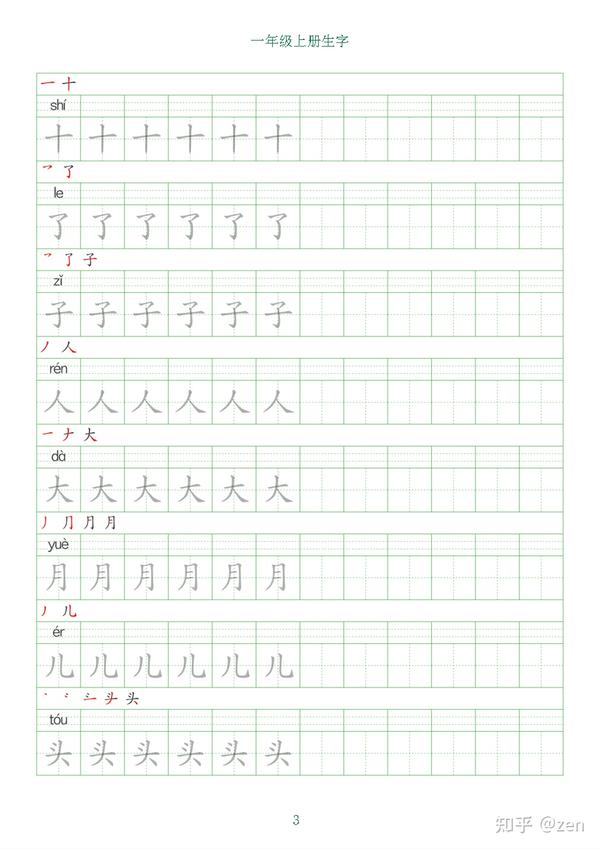 一年级上册生字
一 十
shí
十 十 十 十 十 十
乛 了
le
了 了 了 了 了 了
乛 了 子
zǐ
子 子 子 子 子 子
丿 人
rén
人 人 人 人 人 人
一 ナ 大
dà
大 大 大 大 大 大
丿 ⺆ 月 月
yuè
月 月 月 月 月 月
丿 儿
ér
儿 儿 儿 儿 儿 儿
头
tóu
头 头 头 头 头 头
3
知乎 @zen